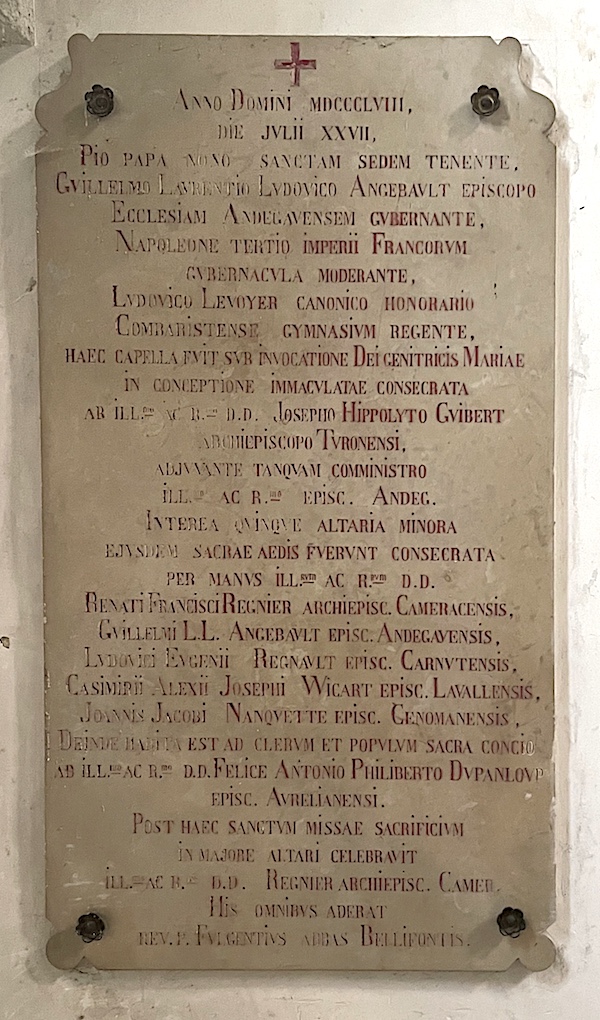 ANNO DOMINI MDCCCLVIII,
DIE JVLII XXVII,
PIO PAPA NONO SANCTAM SEDEM TENENTE,
GVILLELMO LAVRENTIO LVDOVICO ANGEBAVLT EPISCOPO
ECCLESIAM ANDEGAVENSEM GVBERNANTE,
NAPOLEONE TERTIO IMPERII FRANCORVM
GVBERNACVLA MODERANTE,
LVDOVICO LEVOYER CANONICO HONORARIO
COMBARISTENSE GYMNASIVM REGENTE,
HAEC CAPELLA FVIT SVB INVOCATIONE DEI GENITRICIS MARIAE
IN CONCEPTIONE IMMACVLATAE CONSECRATA
AB ILL.mo AC R.mo D.D. JOSEPHO HIPPOLYTO GVIBERT
ARCHIEPISCOPO TVRONENSI,
ADJVVANTE TANQVAM COMMINISTRO
ILL.mo AC R.mo EPISC. ANDEG.
INTEREA QVINQVE ALTARIA MINORA
EJVSDEM SACRAE AEDIS FVERVNT CONSECRATA
PER MANVS ILL.rvm AC R.rvm D.D.
RENATI FRANCISCI REGNIER ARCHIEPISC. CAMERACENSIS,
GVILLELMI L.L. ANGEBAVLT EPISC. ANDEGAVENSIS,
LVDOVICI EVGENII REGNAVLT EPISC. CARNVTENSIS,
CASIMIRII ALEXII JOSEPHI WICART EPISC. LAVALLENSIS,
JOANNIS JACOBI NANQVETTE EPISC. GENOMANENSIS,
DEINDE HABITA EST AD CLERVM ET POPVLVM SACRA CONCIO
AB ILL.mo AC R.mo D.D. FELICE ANTONIO PHILIBERTO DVPANLOVP
EPISC. AVRELIANENSI.
POST HAEC SANCTVM MISSAE SACRIFICIVM
IN MAJORE ALTARI CELEBRAVIT
ILL.mo AC R.mo D.D. REGNIER ARCHIEPISC. CAMER.
HIS OMNIBVS ADERAT
REV. P. FVLGENTIVS ABBAS BELLIFONTIS.